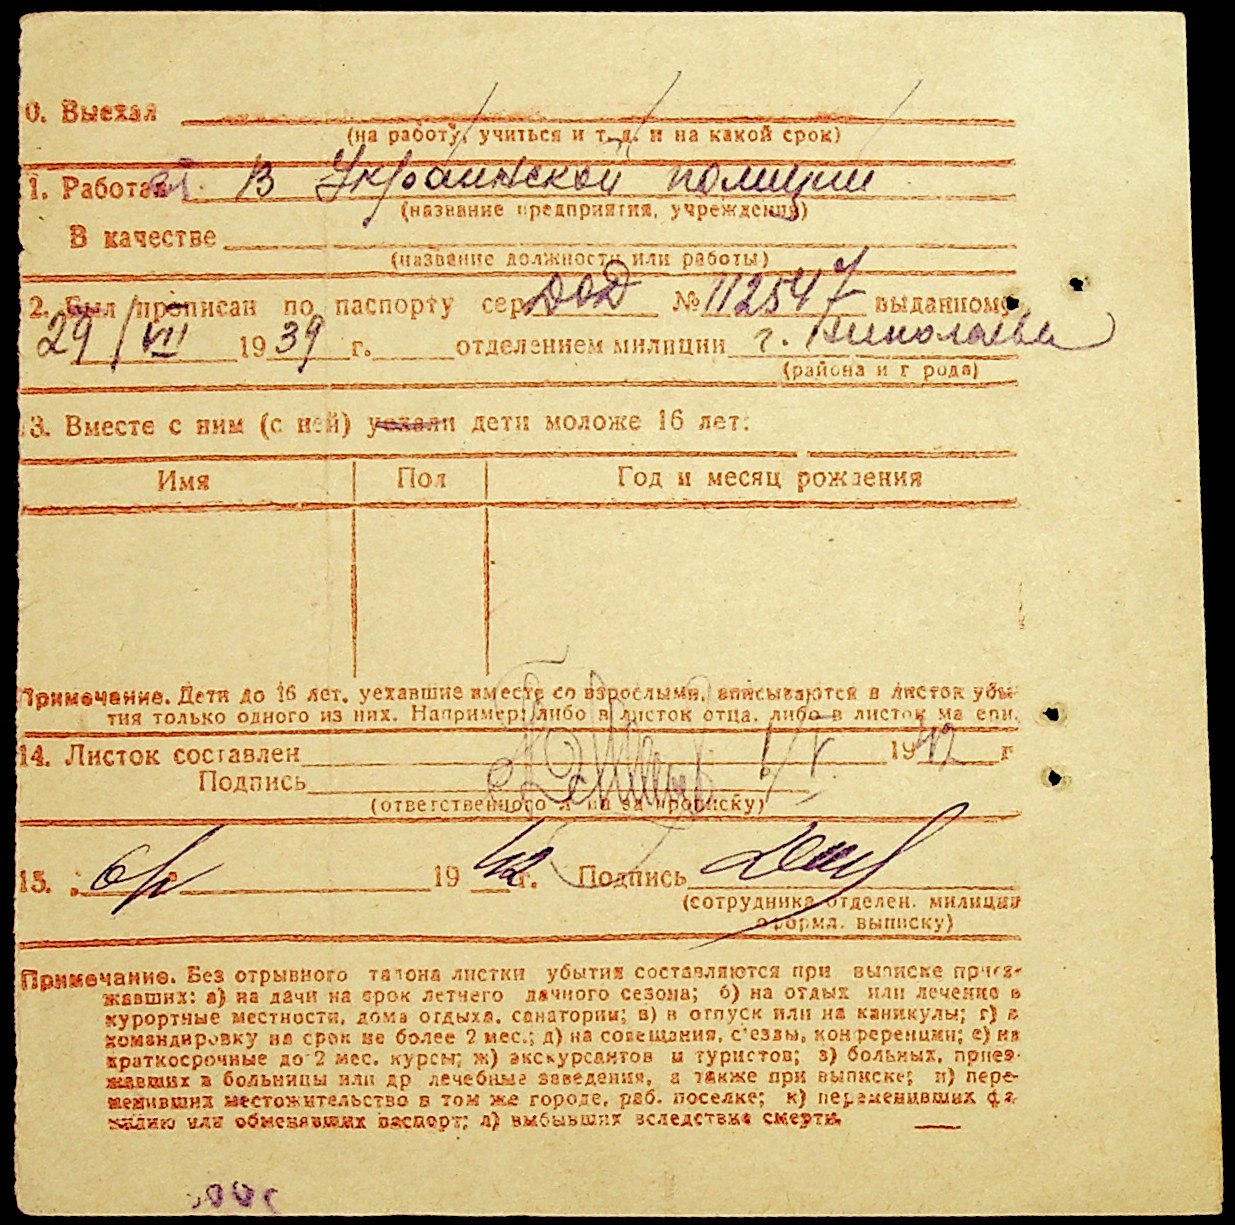 0. Выехал
(на работу, учиться и т. д. и на какой срок)
1. Работал в Украинской полиции
(название предприятия, учреждения)
В качестве
(название должности или работы)
2. Был прописан по паспорту сер. ДОД № 112547 выданному
29/VII 1939 г. отделением милиции г. Николаева
(района и г рода)
3. Вместе с ним (с ней) уехали дети моложе 16 лет:
Имя Пол Год и месяц рождения
Примечание. Дети до 16 лет, уехавшие вместе со взрослыми, вписываются в листок убы-
тия только одного из них. Например: либо в листок отца, либо в листок ма ери.
14. Листок составлен 1/V 1942 г
Подпись
(ответственного л ца за прописку)
15. 19 42 г. Подпись
(сотрудника отделен. милиции
оформл. выписку)
Примечание. Без отрывного талона листки убытия составляются при выписке приез-
жавших: а) на дачи на срок летнего дачного сезона; б) на отдых или лечение в
курортные местности, дома отдыха, санатории; в) в отпуск или на каникулы; г) в
командировку на срок не более 2 мес.; д) на совещания, с'езды, конференции; е) на
краткосрочные до 2 мес. курсы; ж) экскурсантов и туристов; з) больных, приез-
жавших в больницы или др лечебные заведения, а также при выписке; и) пере-
менивших местожительство в том же городе, раб. поселке; к) переменивших фа-
милию или обменявших паспорт; л) выбывших вследствие смерти.